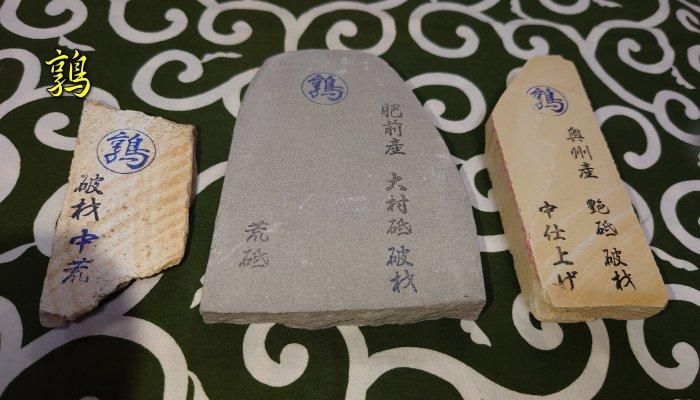 鶉
鶉
破材 中荒
鶉
肥前産 大村砥 破材
荒砥
鶉
奥州産 艶砥 破材
中仕上げ